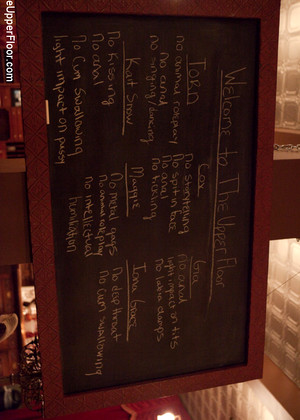 eUpperFloor.com
Welcome to The Upper Floor
TORN
no animal roleplay
no anal
no singing/dancing
Cox
No storytelling
No spit in face
No anal
No tickling
Gia
no anal
light impact on tits
no labia clamps
Kait Snow
No kissing
No anal
No Cum Swallowing
light impact on pussy
Maggie
No metal gags
no animal role play
no intellectual
humiliation
Iona Grace
No deep throat
No cum swallowing